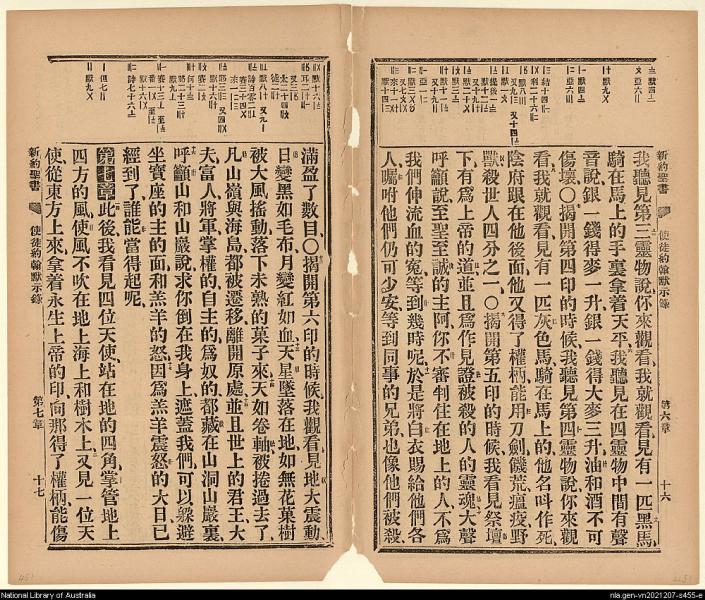 新約聖書 使徒約翰默示錄 第六章 十六
我聽見第三靈物說你來觀看我就觀看見有一匹黑馬
騎在馬上的手裏拿着天平我聽見在四靈物中間有聲
音說銀一錢得麥一升銀一錢得大麥三升油和酒不可
傷壞○揭開第四印的時候我聽見第四靈物說你來觀
看我就觀看見有一匹灰色馬騎在馬上的他名叫作死
陰府跟在他後面他又得了權柄能用刀劍饑荒瘟疫野
獸殺世人四分之一○揭開第五印的時候我看見祭壇
下有爲上帝的道並且爲作見證被殺的人的靈魂大聲
呼籲說至聖至誠的主阿你不審判住在地上的人不爲
我們伸流血的寃等到幾時呢於是將白衣賜給他們各
人囑咐他們仍可少安等到同事的兄弟也像他們被殺
滿盈了數目○揭開第六印的時候我觀看見地大震動
日變黑如毛布月變紅如血天星墜落在地如無花菓樹
被大風搖動落下未熟的菓子來天如卷軸被捲過去了
凡山嶺與海島都被遷移離開原處並且世上的君王大
夫富人將軍掌權的自主的爲奴的都藏在山洞山巖裏
呼籲山和山巖說求你倒在我身上遮蓋我們可以躱避
坐寶座的主的面和羔羊的怒因爲羔羊震怒的大日已
經到了誰能當得起呢
第七章此後我看見四位天使站在地的四角掌管地上
四方的風使風不吹在地上海上和樹木上又見一位天
使從東方上來拿着永生上帝的印向那得了權柄能傷
新約聖書 使徒約翰默示錄 第七章 十七
National Library of Australia
nla.gen-vn2021207-s455-e